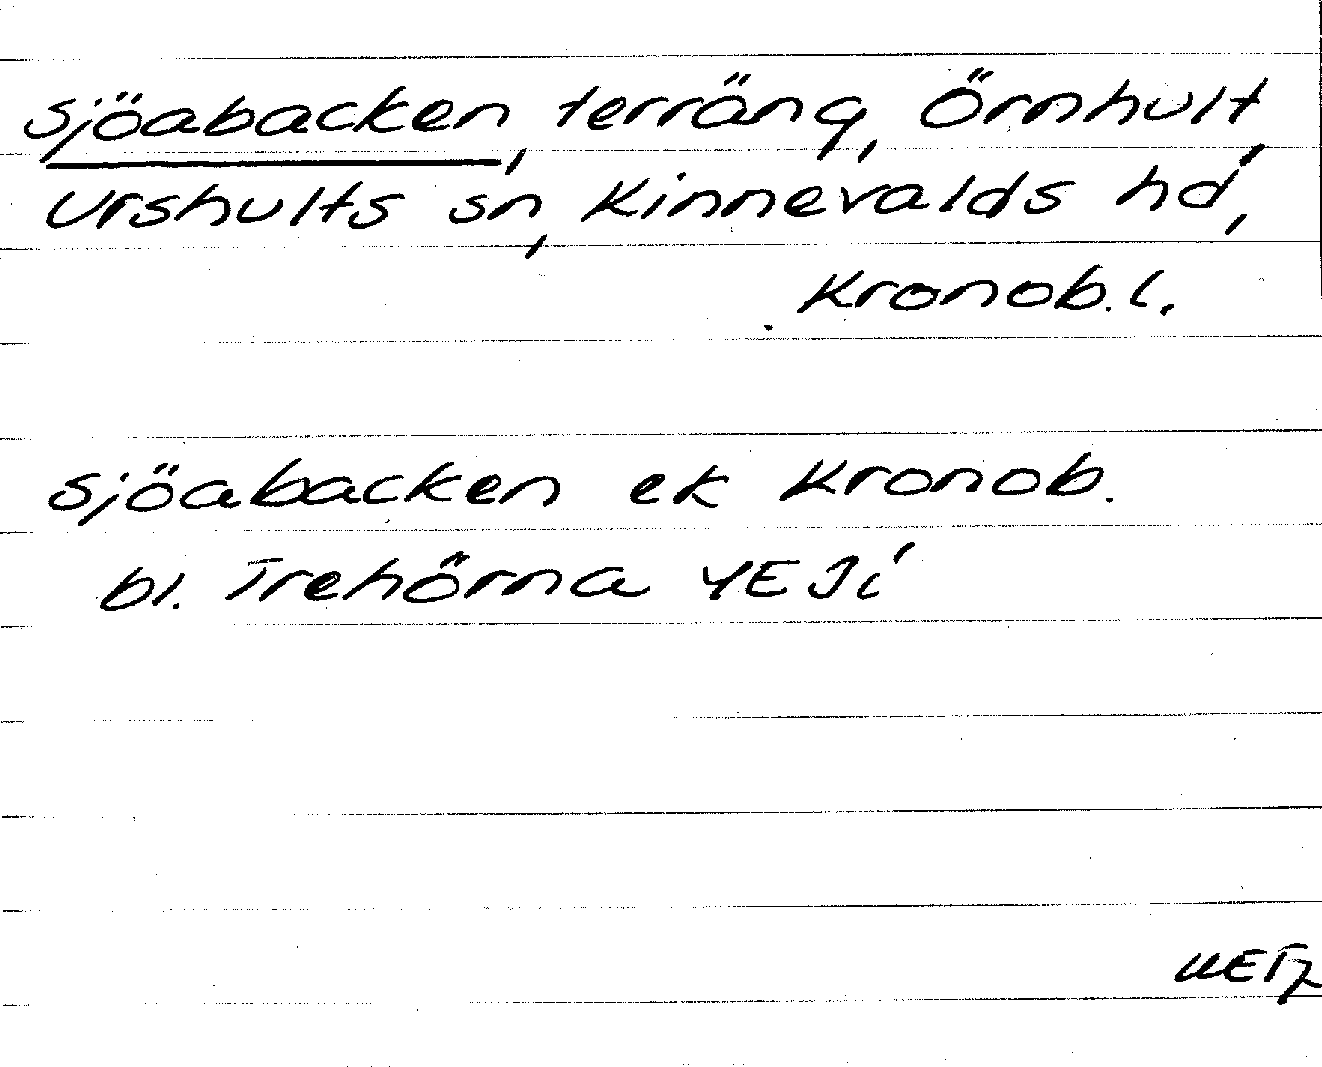 Sjöabacken, terräng, Örnhult,
Urshults sn, Kinnevalds hd,
Kronob. l.
Sjöabacken ek Kronob.
bl. Trehörna 4E Ji